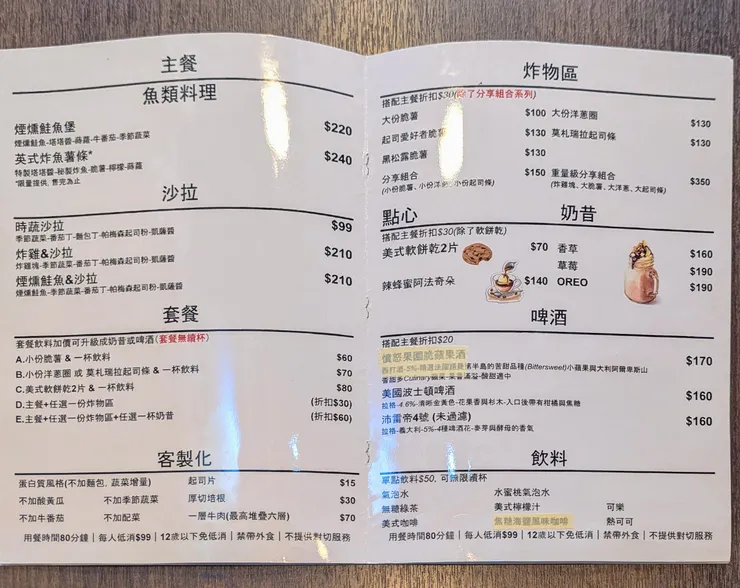 主餐
魚類料理
煙燻鮭魚堡 $220
煙燻鮭魚-塔塔醬-蒔蘿-牛番茄-季節蔬菜
英式炸魚薯條* $240
特製塔塔醬-秘製炸魚-脆薯-檸檬-蒔蘿
*限量提供, 售完為止
沙拉
時蔬沙拉 $99
季節蔬菜-番茄丁-麵包丁-帕梅森起司粉-凱薩醬
炸雞&沙拉 $210
炸雞塊-季節蔬菜-番茄丁-帕梅森起司粉-凱薩醬
煙燻鮭魚&沙拉 $210
煙燻鮭魚-季節蔬菜-番茄丁-帕梅森起司粉-凱薩醬
套餐
套餐飲料加價可升級成奶昔或啤酒(套餐無續杯)
A.小份脆薯 & 一杯飲料 $60
B.小份洋蔥圈 或 莫札瑞拉起司條 & 一杯飲料 $70
C.美式軟餅乾2片 & 一杯飲料 $80
D.主餐+任選一份炸物區 (折扣$30)
E.主餐+任選一份炸物區+任選一杯奶昔 (折扣$60)
客製化
蛋白質風格(不加麵包, 蔬菜增量) 起司片 $15
不加酸黃瓜 不加季節蔬菜 厚切培根 $30
不加牛番茄 不加配菜 一層牛肉(最高堆疊六層) $70
用餐時間80分鐘｜每人低消$99｜12歲以下免低消｜禁帶外食｜不提供對切服務
炸物區
搭配主餐折扣$30(除了分享組合系列)
大份脆薯 $100 大份洋蔥圈 $130
起司愛好者脆薯 $130 莫札瑞拉起司條 $130
黑松露脆薯 $130
分享組合 $150 重量級分享組合 $350
(小份脆薯, 小份洋蔥, 小份起司條) (炸雞塊, 大脆薯, 大洋蔥, 大起司條)
點心 奶昔
搭配主餐折扣$30(除了軟餅乾)
美式軟餅乾2片 $70 香草 $160
草莓 $190
辣蜂蜜阿法奇朵 $140 OREO $190
啤酒
搭配主餐折扣$20
憤怒果園脆蘋果酒 $170
蘋果半島的苦甜品種(Bittersweet)小蘋果與大利阿爾卑斯山
Culinary蘋果-果香滿溢-酸甜適中
美國波士頓啤酒 $160
拉格-4.6%-清晰金黃色-花果香與杉木-入口後帶有柑橘與焦糖
沛雷帝4號 (未過濾) $160
拉格-義大利-5%-4種啤酒花-麥芽與酵母的香氣
飲料
單點飲料$50, 可無限續杯
氣泡水 水蜜桃氣泡水
無糖綠茶 美式檸檬汁 可樂
美式咖啡 焦糖海鹽風味咖啡 熱可可
用餐時間80分鐘｜每人低消$99｜12歲以下免低消｜禁帶外食｜不提供對切服務